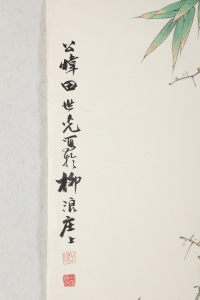 公暐田世光写於柳浪庄上